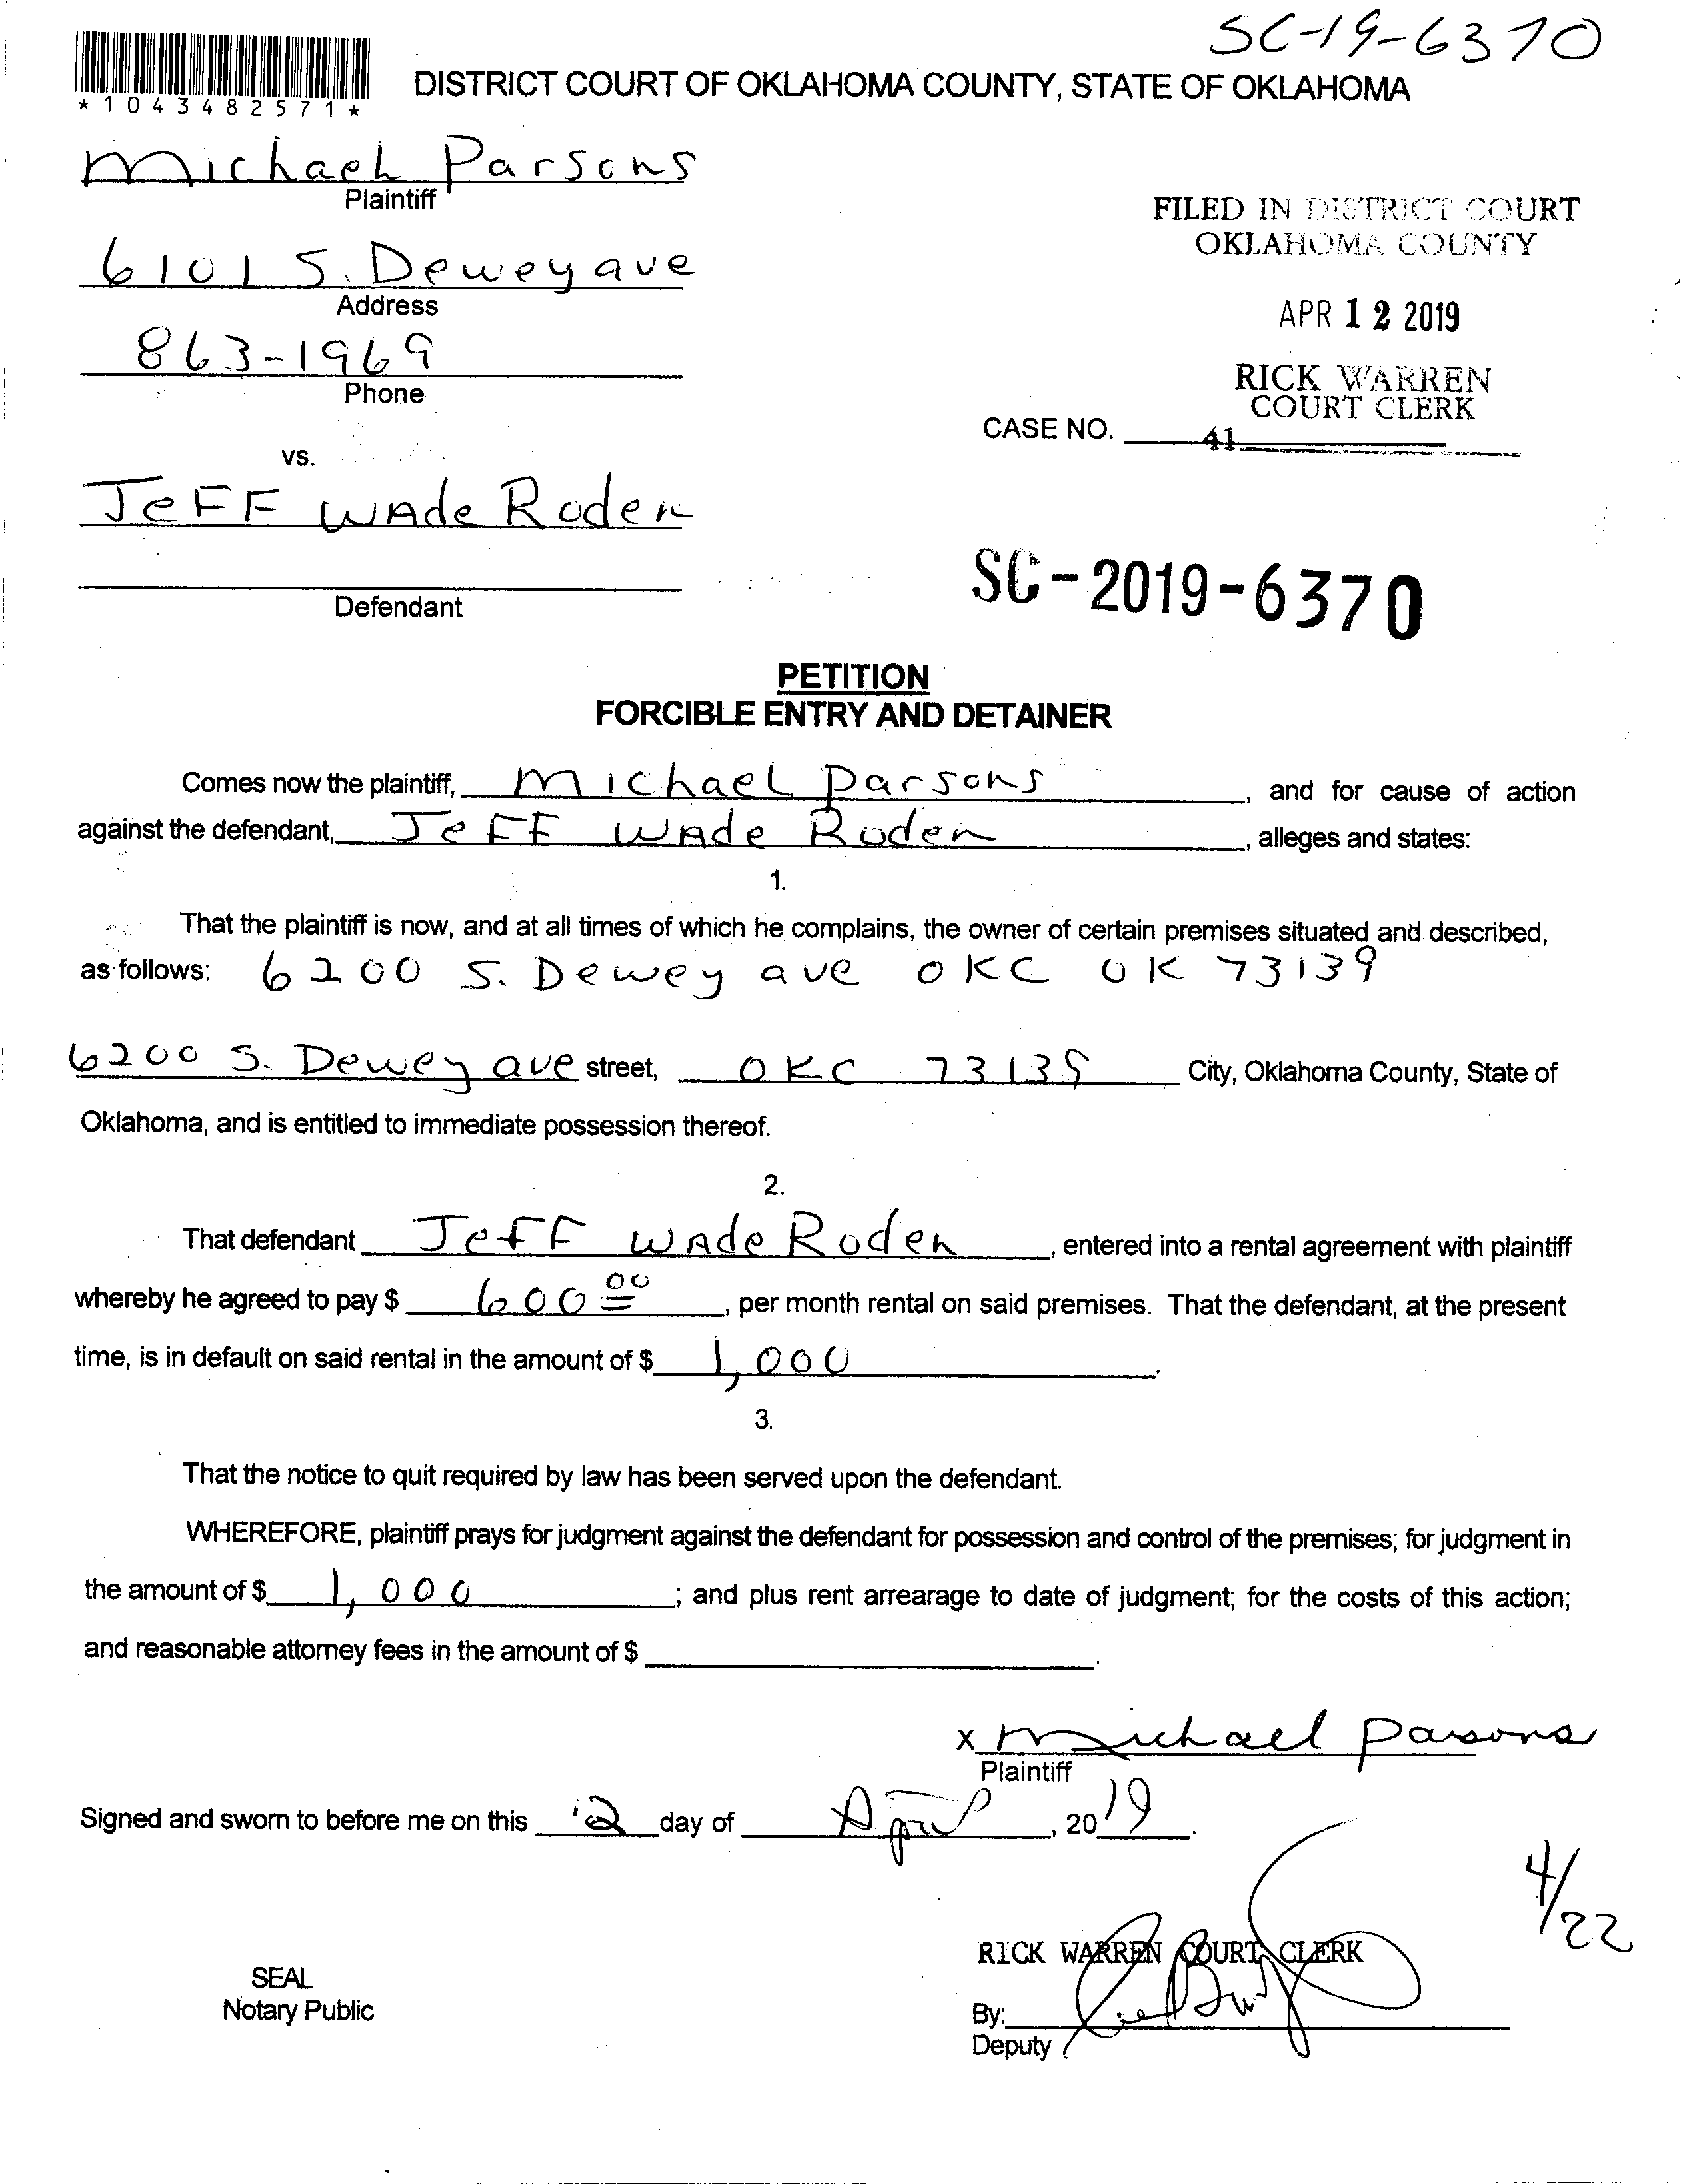 SC-19-6370
*1043482571*
DISTRICT COURT OF OKLAHOMA COUNTY, STATE OF OKLAHOMA
Michael Parsons
Plaintiff
6101 S. Dewey ave
Address
863-1969
Phone
FILED IN DISTRICT COURT
OKLAHOMA COUNTY
APR 12 2019
RICK WARREN
COURT CLERK
CASE NO. 41
vs.
JeFF WAde Roden
Defendant
SC-2019-6370
PETITION
FORCIBLE ENTRY AND DETAINER
Comes now the plaintiff, Michael Parsons, and for cause of action
against the defendant, JeFF WAde Roden, alleges and states:
1.
That the plaintiff is now, and at all times of which he complains, the owner of certain premises situated and described,
as follows: 6200 S. Dewey ave OKC OK 73139
6200 S. Dewey ave street, OKC 73139 City, Oklahoma County, State of
Oklahoma, and is entitled to immediate possession thereof.
2.
That defendant JeFF WAde Roden, entered into a rental agreement with plaintiff
whereby he agreed to pay $ 600 00, per month rental on said premises. That the defendant, at the present
time, is in default on said rental in the amount of $ 1,000.
3.
That the notice to quit required by law has been served upon the defendant.
WHEREFORE, plaintiff prays for judgment against the defendant for possession and control of the premises; for judgment in
the amount of $ 1,000; and plus rent arrearage to date of judgment; for the costs of this action;
and reasonable attorney fees in the amount of $.
x Michael Parsons
Plaintiff
Signed and sworn to before me on this 12 day of April, 2019.
4/22
RICK WARREN COURT CLERK
SEAL
Notary Public
By:
Deputy